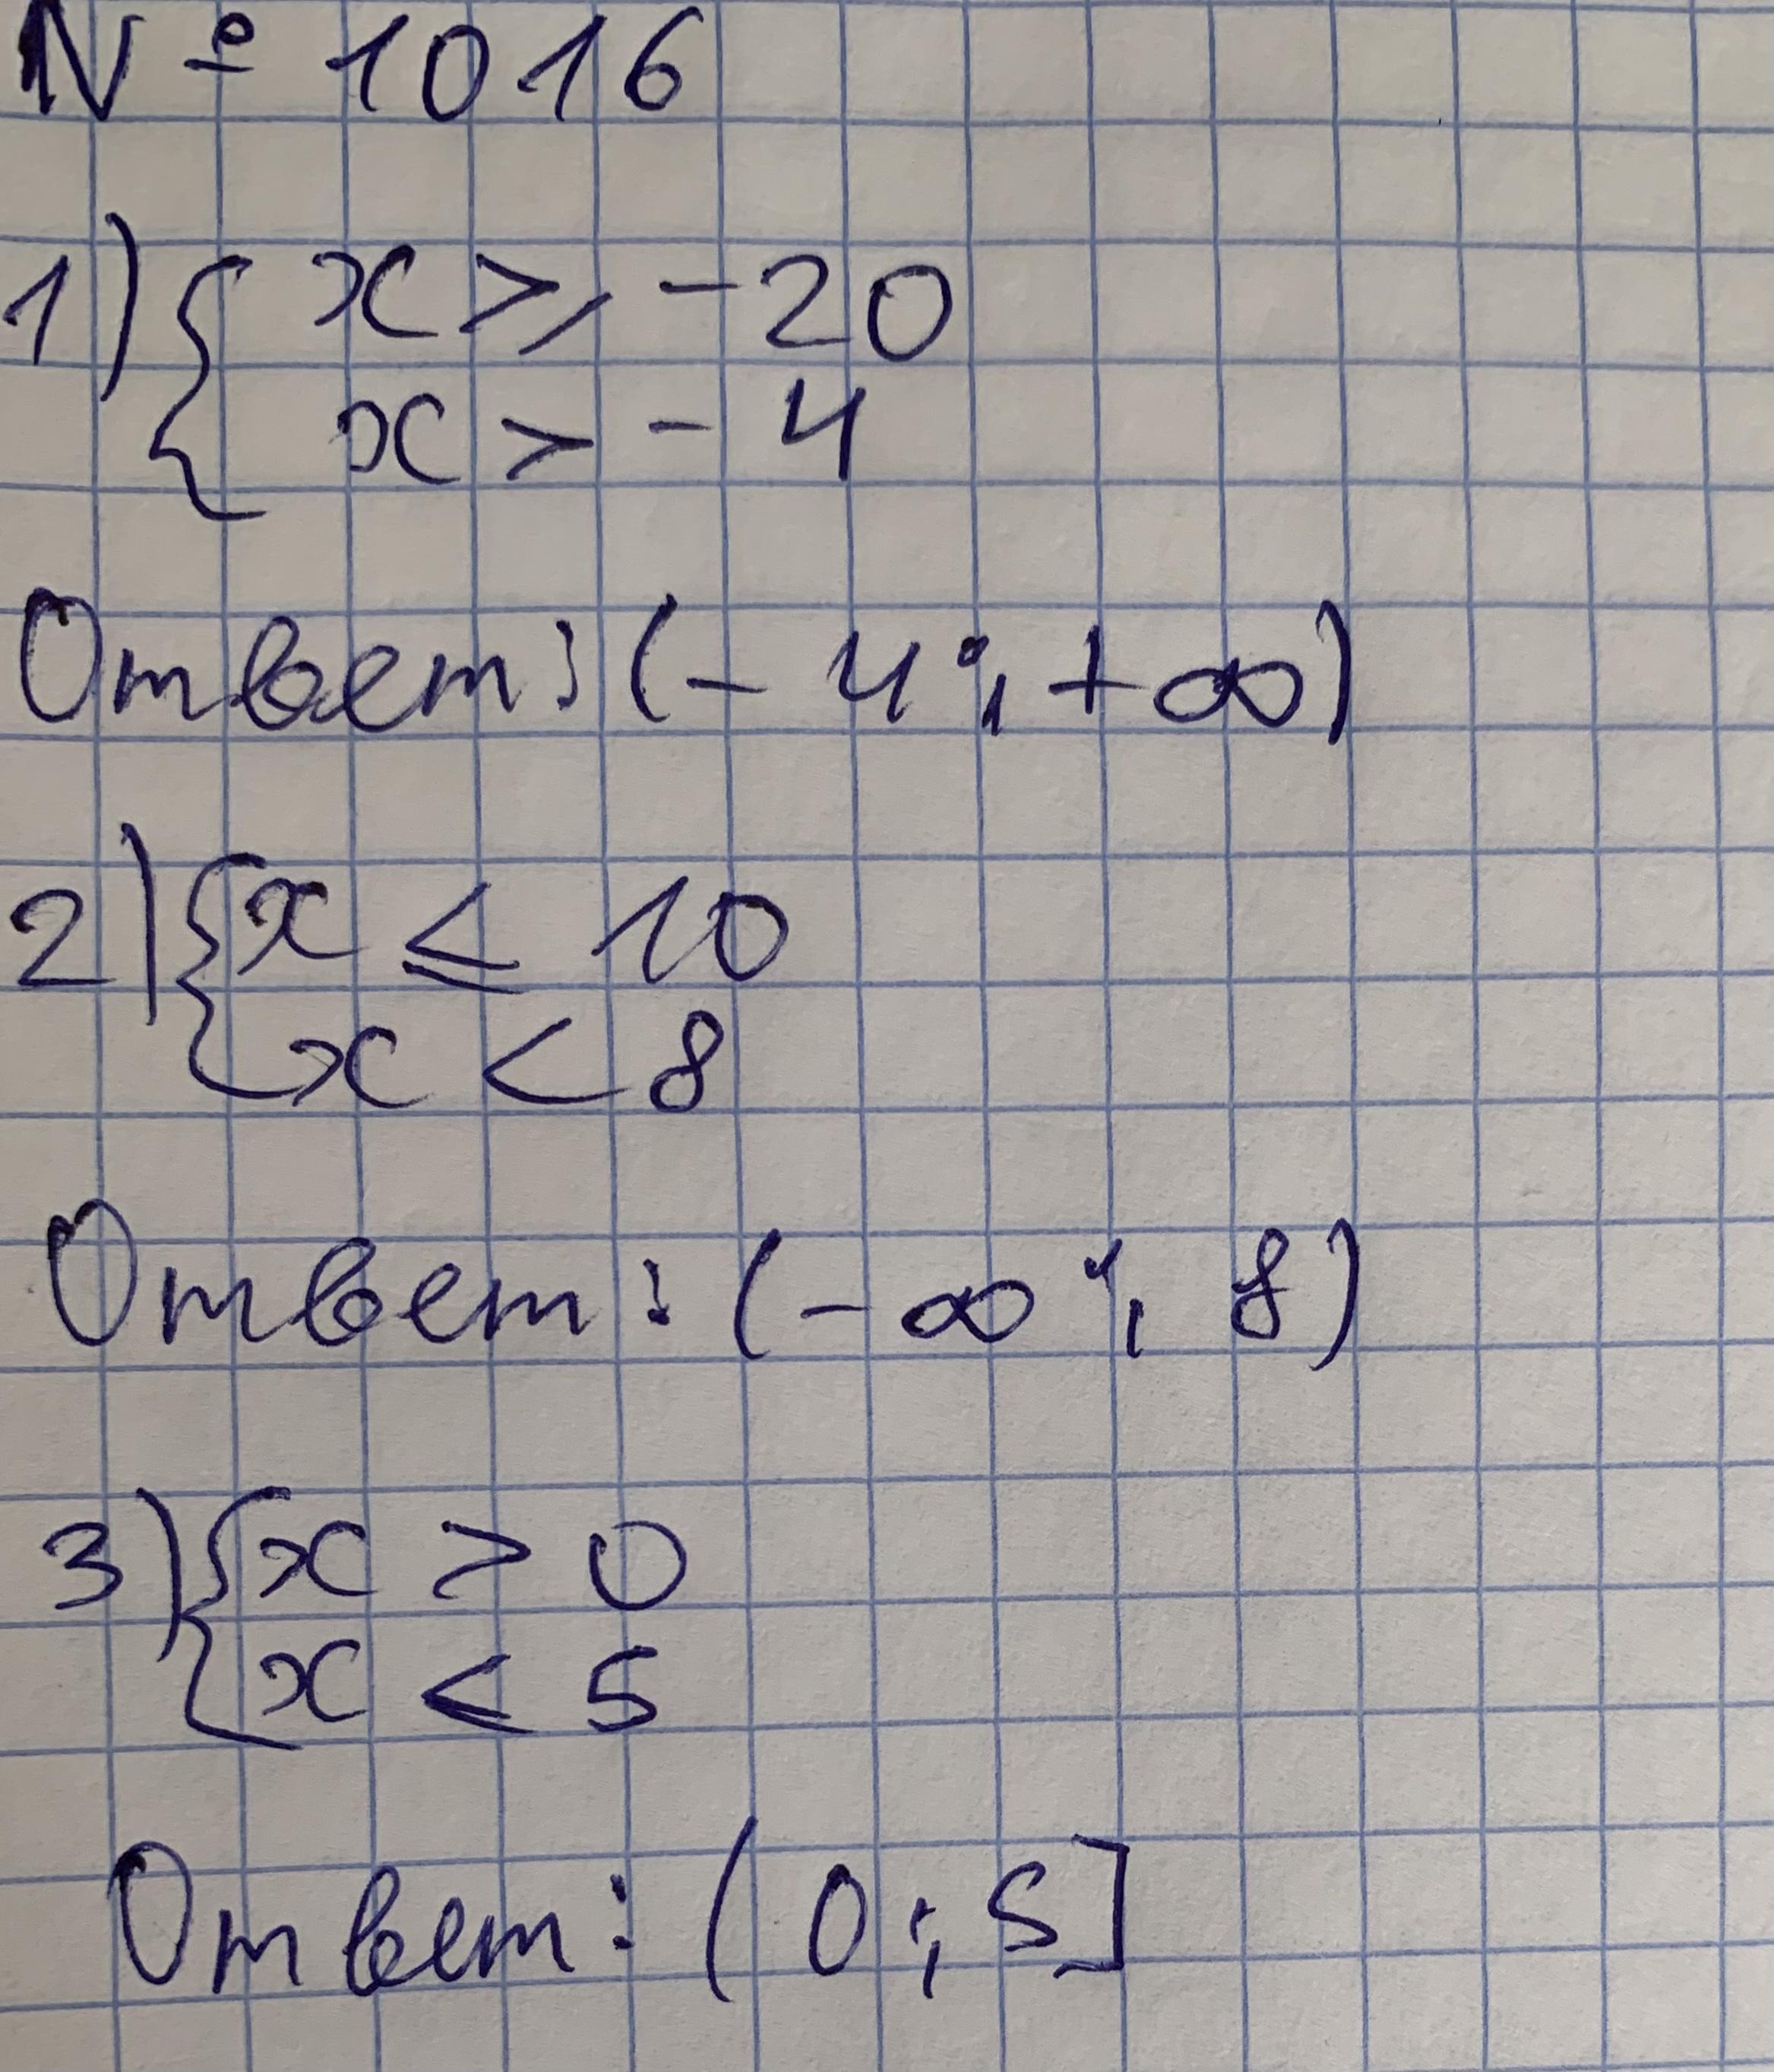 № 1016
1) { x ⩾ -20
x > -4
Ответ: (-4; +∞)
2) { x ⩽ 10
x < 8
Ответ: (-∞; 8)
3) { x > 0
x ⩽ 5
Ответ: (0; 5]